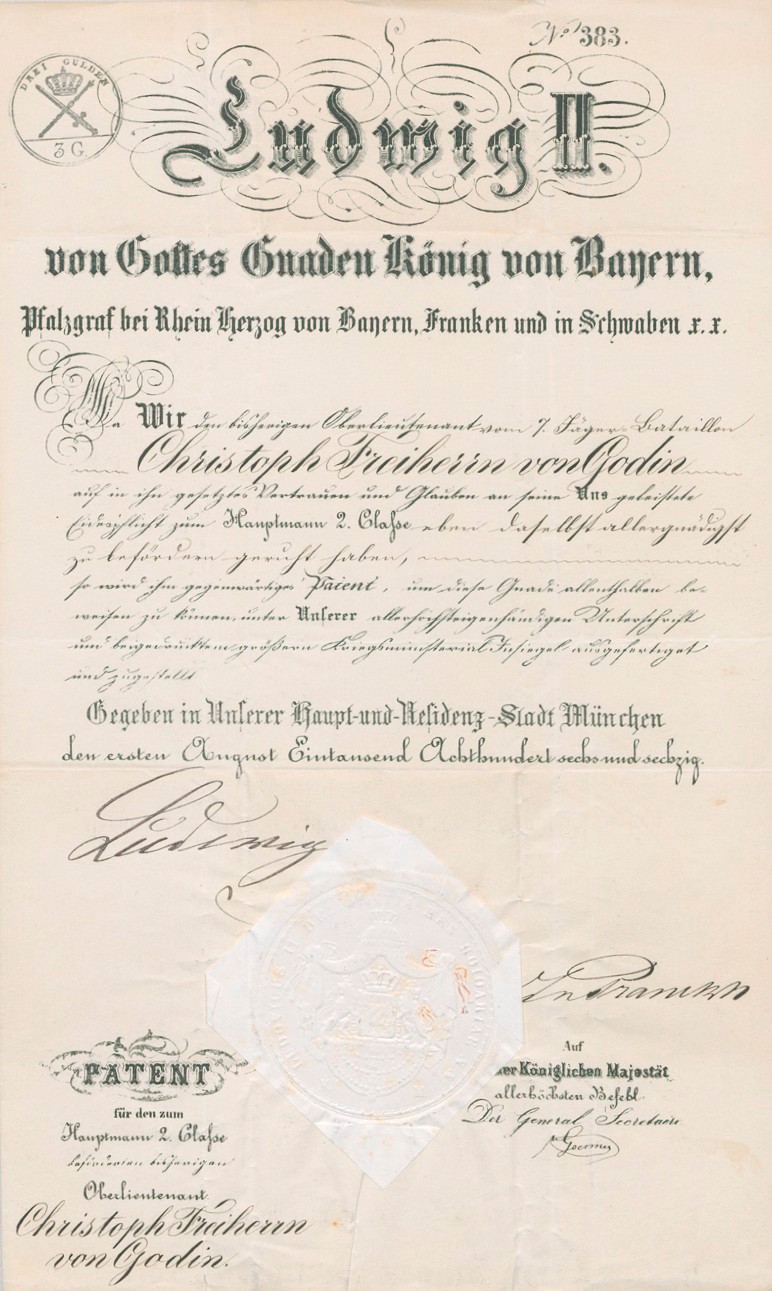 No 383.
DREI GULDEN
3 G.
Ludwig II.
von Gottes Gnaden König von Bayern,
Pfalzgraf bei Rhein Herzog von Bayern, Franken und in Schwaben x. x.
Da Wir den bisherigen Oberlieutenant vom 7. Jäger-Bataillon
Christoph Freiherrn von Godin
auf in ihn gesetztes Vertrauen und Glauben an seine Uns geleistete
Eidespflicht zum Hauptmann 2. Classe eben daselbst allergnädigst
zu befördern geruht haben,
so wird ihm gegenwärtiges Patent, um diese Gnade allenthalben be-
weisen zu können, unter Unserer allerhöchsteigenhändigen Unterschrift
und beigedrucktem größern Kriegsministerial-Insiegel ausgefertiget
und zugestellt
Gegeben in Unserer Haupt-und-Residenz-Stadt München
den ersten August Eintausend Achthundert sechs und sechzig.
Ludwig
Auf
der Königlichen Majestät
allerhöchsten Befehl
Der General Secretaire
PATENT
für den zum
Hauptmann 2. Classe
beförderten bisherigen
Oberlieutenant
Christoph Freiherrn
von Godin.